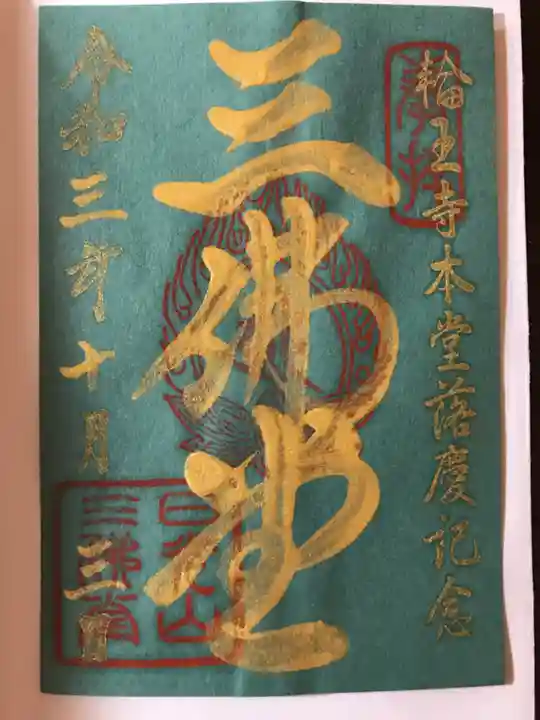 奉拝
輪王寺本堂落慶記念
三佛堂
令和三年十月三日
日光山
三佛堂